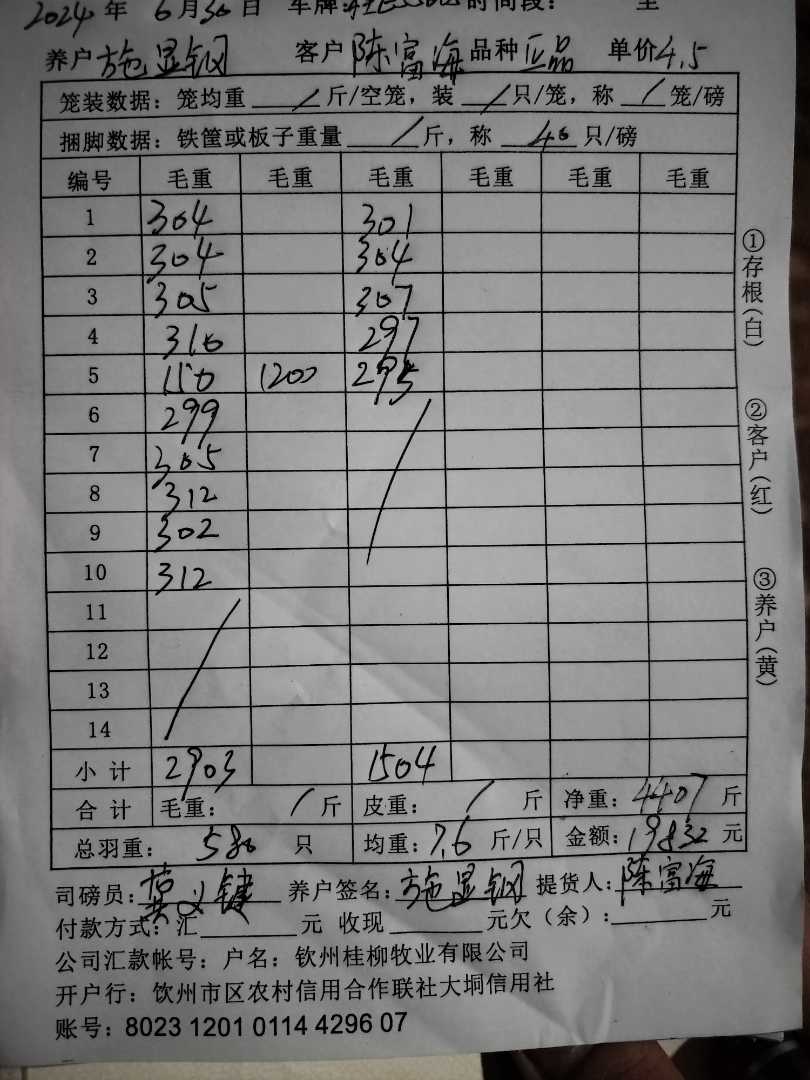 2024 年 6 月 30 日 车牌 时间段: 至
养户 施显钢 客户 陈富海 品种 正品 单价 4.5
笼装数据: 笼均重 / 斤/空笼, 装 / 只/笼, 称 / 笼/磅
捆脚数据: 铁筐或板子重量 / 斤, 称 40 只/磅
编号 毛重 毛重 毛重 毛重 毛重 毛重
1 304 301
2 304 304
3 305 307
4 310 297
5 150 1200 295
6 299
7 305
8 312
9 302
10 312
11
12
13
14
小计 2903 1504
合计 毛重: / 斤 皮重: / 斤 净重: 4407 斤
总羽重: 580 只 均重: 7.6 斤/只 金额: 19832 元
司磅员: 养户签名: 施显钢 提货人: 陈富海
付款方式: 汇 元 收现 元欠(余): 元
公司汇款帐号: 户名: 钦州桂柳牧业有限公司
开户行: 钦州市区农村信用合作联社大垌信用社
账号: 8023 1201 0114 4296 07
①存根(白)
②客户(红)
③养户(黄)